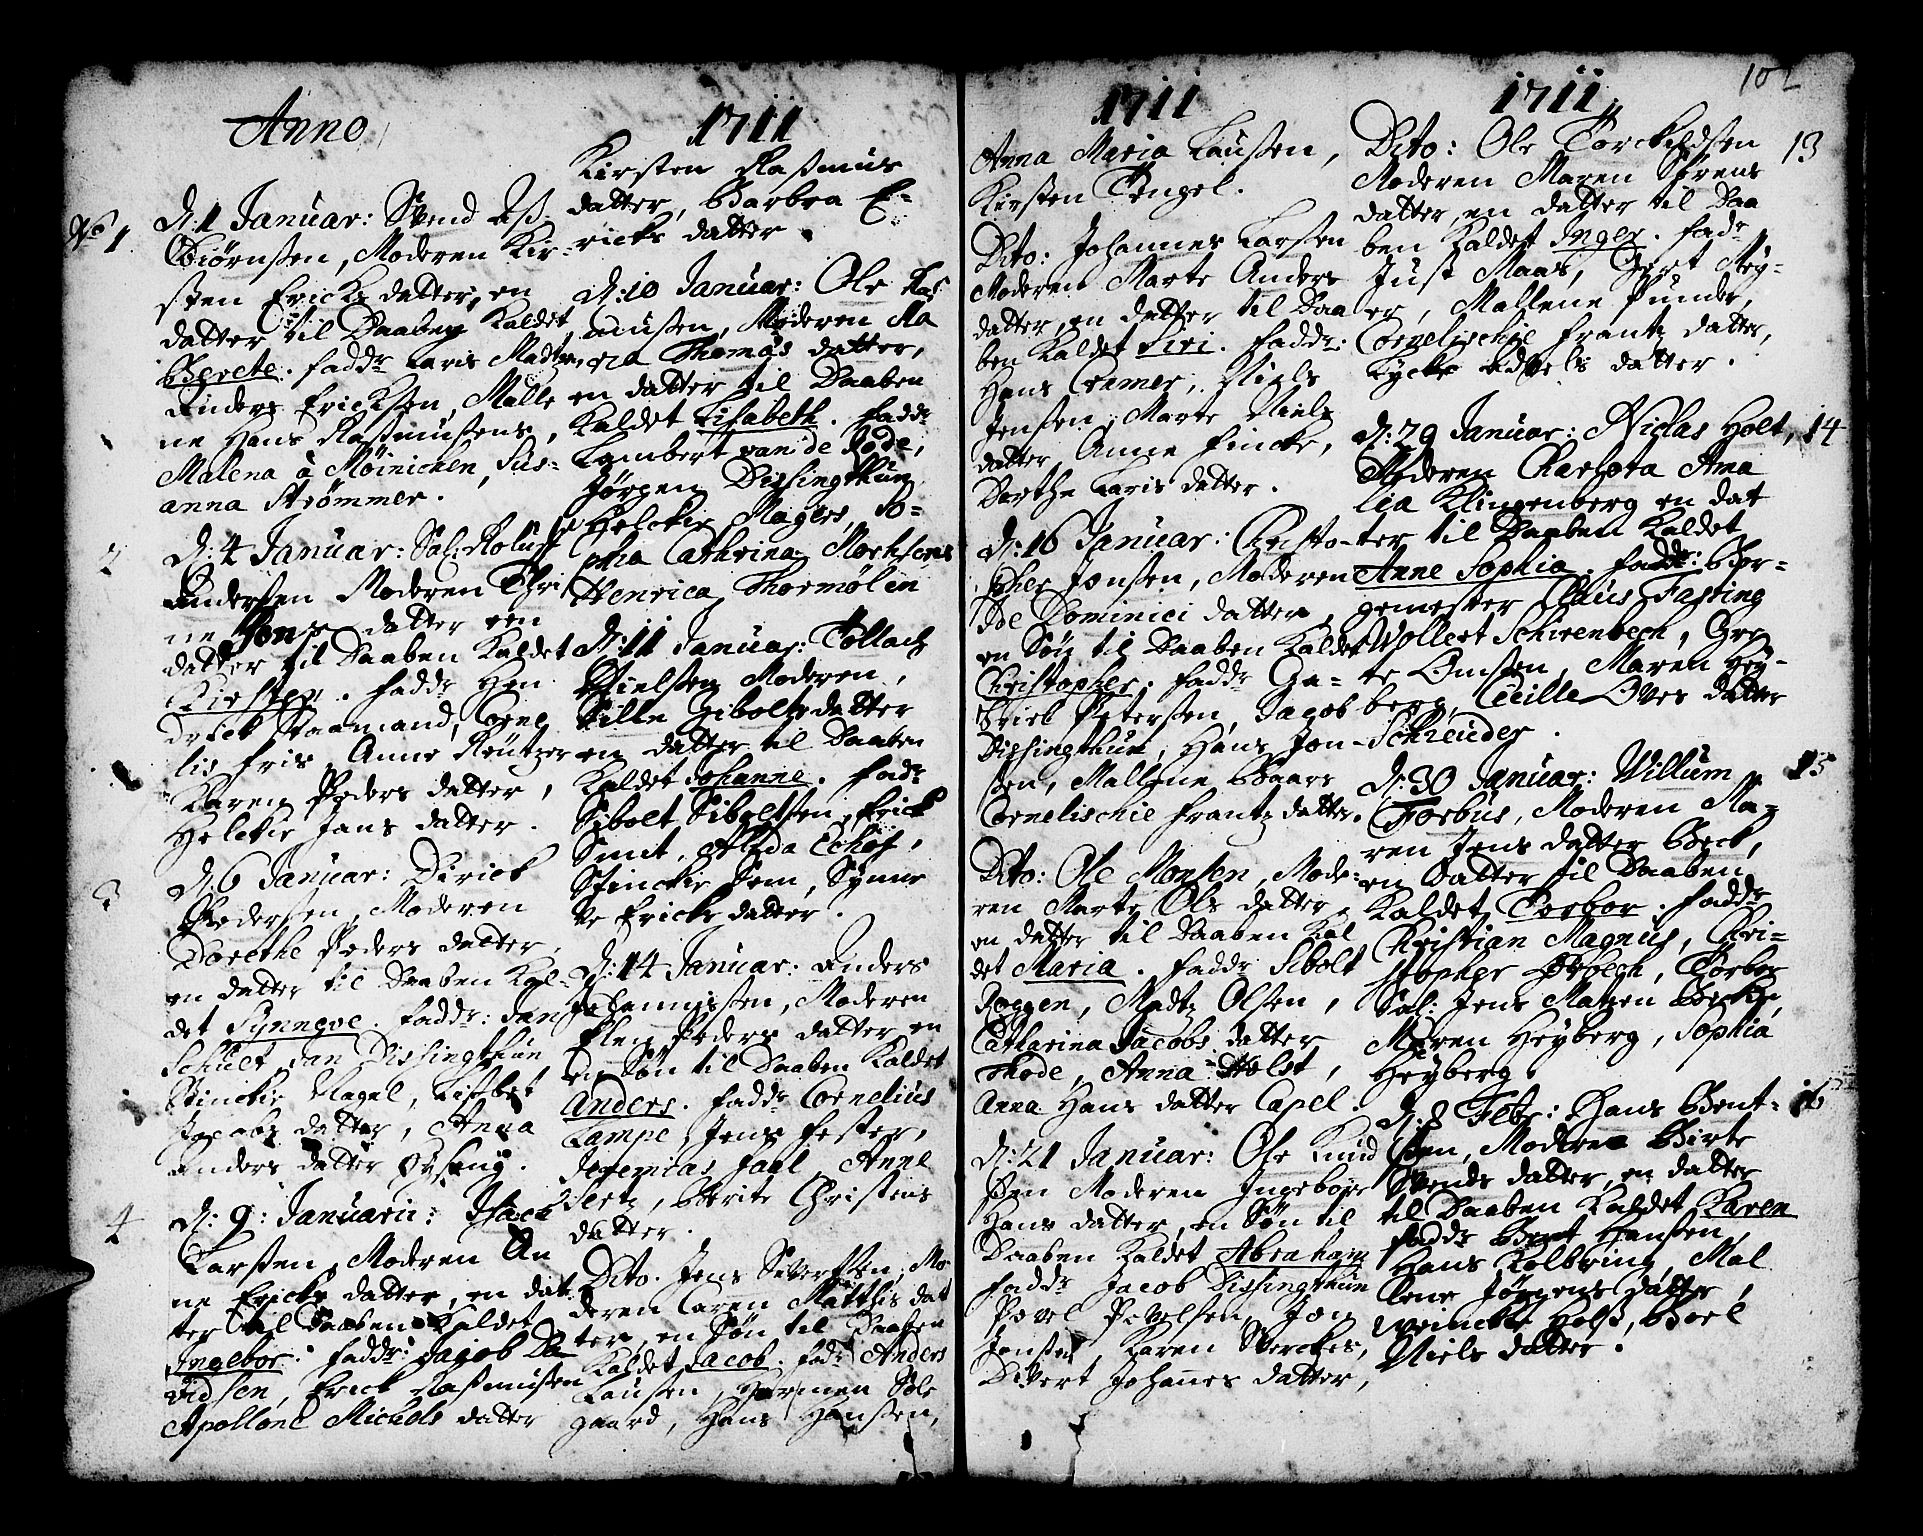 Anno 1711
No 1
D: 1 Januar: Svend Es-
biørnsen, Moderen Kir-
sten Ericks datter, en
datter til Daaben Kaldet
Berete. Faddr Laris Madtzen,
Anders Ericksen, Malle
ne Hans Rasmusens,
Malena à Møinichen, Sus-
anna Strømmer.
2
D: 4 Januar: Sal: Roluf
Andersen Moderen Thri
ne Jons datter en
datter til Daaben Kaldet
Kirsten. Faddr Hen
drick Staamand, Corne
lis Fris, Anne Reutzer
Karen Peders datter,
Helckie Jans datter.
3
D: 6 Januar: Dirick
Pedersen, Moderen
Dorethe Peders datter,
en datter til Daaben Kal-
det Synneve. Faddr: Jan
Schult, Jan Dissingthun
Stinckie Nagel, Lisbet
Jacobs datter, Anna
Anders datter
4
D: 9: Januarii: Isach
Larsen, Moderen An
ne Ericks datter, en dat
ter til Daaben Kaldet
Ingebor. Faddr: Jacob Da
vidsen, Erick Rasmusen
Apollone Michels datter
1711
Kirsten Rasmus
datter, Barbra E-
ricks datter.
D: 10 Januar: Ole Ras
musen, Moderen Ma
ria Thomas datter,
en datter til Daaben
Kaldet Lisabeth. Faddr
Lambert van de Rode,
Jørgen Dissingthun
Helckie Mager, So-
phia Cathrina
Henrica Thormølen
D: 11 Januar: Tollach
Nielsen Moderen,
Sille Sibolts datter
en datter til Daaben
Kaldet Johanne. Fadr
Sibolt Siboltsen, Erick
Smit, Alida Eckhof,
Stinckie Jem, Synne
ve Ericks datter.
D: 14 Januar: Anders
Johannissen, Moderen
Elen Peders datter en
en Søn til Daaben Kaldet
Anders. Faddr Cornelius
Lampe, Jens Fester,
Jeremias Faal, Anne
Sertz, Berite Christens
datter.
Dito. Jens Sivertsen, Mo
deren Caren Matthis dat
ter, en Søn til Daaben
Kaldet Jacob. Fadr Anders
Lausen, Harmen Sole
gaard, Hans Hansen,
1711
Anna Maria Lausen,
Kirsten Engel.
Dito: Johannes Larsen
Moderen Marte Anders
datter, en datter til Daa
ben Kaldet Siri. Faddr:
Hans Cramer, Niels
Jensen, Marte Niels
datter Anne Fincke,
Dorthe Laris datter.
D: 16 Januar: Christo-
pher Jonsen, Moderen
Ide Dominici datter,
en Søn til Daaben Kaldet
Christopher. Faddr Ga-
briel Petersen, Jacob
Dissingthun, Hans Jon-
sen, Mallene Baars
Cornelischie Frantz datter.
Dito: Ole Monsen, Mode-
ren Marte Ols datter,
en datter til Daaben Kal
det Maria. Faddr Sibolt
Roggen, Madtz Olsen,
Catharina Jacobs datter
Thode, Anna Holst,
Anna Hans datter Capel.
D: 21 Januar: Ole Knud
sen Moderen Ingebore
Hans datter, en Søn til
Daaben Kaldet Abraham
Faddr Jacob Dissingthun
Povel Povelsen, Jon
Jonsen, Karen Sterckes,
Divert Johannes datter,
1711
102
13
Dito: Ole Torckeldsen
Moderen Maren Sørens
datter, en datter til Daa
ben Kaldet Inger. Fadr
Just Maas, Gert Mey-
er, Mallene Punder,
Cornelischie Frantz datter,
Kycke Edvels datter.
14
D: 29 Januar: Niclas Holt,
Moderen Charlota Ama
lia Klingenberg en dat
ter til Daaben Kaldet
Anne Sophia. Faddr: Bor-
gemester Claus Fasting
Wollert Schirenbech, Gre
te Omsen, Maren Hey-
berg, Cecille Oves datter
Schreuder.
15
D: 30 Januar: Willum
Forbus, Moderen Ma-
ren Jens datter Beck,
en Datter til Daaben
Kaldet Torbor. Faddr
Christian Magnus, Chri-
stopher Torbor
Sal: Jens Matzen Becks,
Maren Heyberg, Sophia
Heyberg.
16
D: 8 Febr: Hans Bent-
sen, Moderen Birte
Svends datter, en datter
til Daaben Kaldet Karen
Faddr Bent Hansen,
Hans Kolbring, Mal
lene Jørgens datter,
Weincke Holst, Boel
Niels datter.